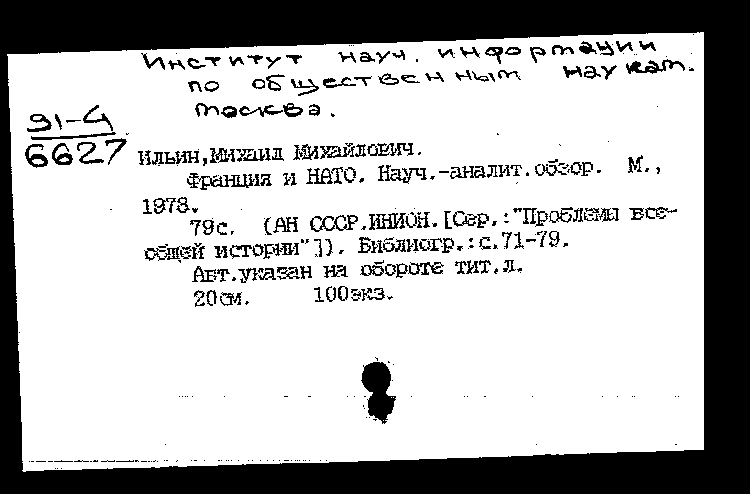 Институт науч. информации
по общественным наукам.
Москва.
91-4
6627
Ильин,Михаил Михайлович.
Франция и НАТО. Науч.-аналит.обзор. М.,
1978.
79с. (АН СССР.ИНИОН.[Сер.:"Проблемы все-
общей истории"]). Библиогр.:с.71-79.
Авт.указан на обороте тит.л.
20см. 100экз.